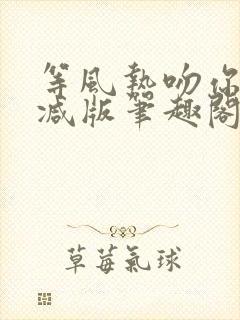 等風熱吻你
減版筆趣閣
草莓氣球